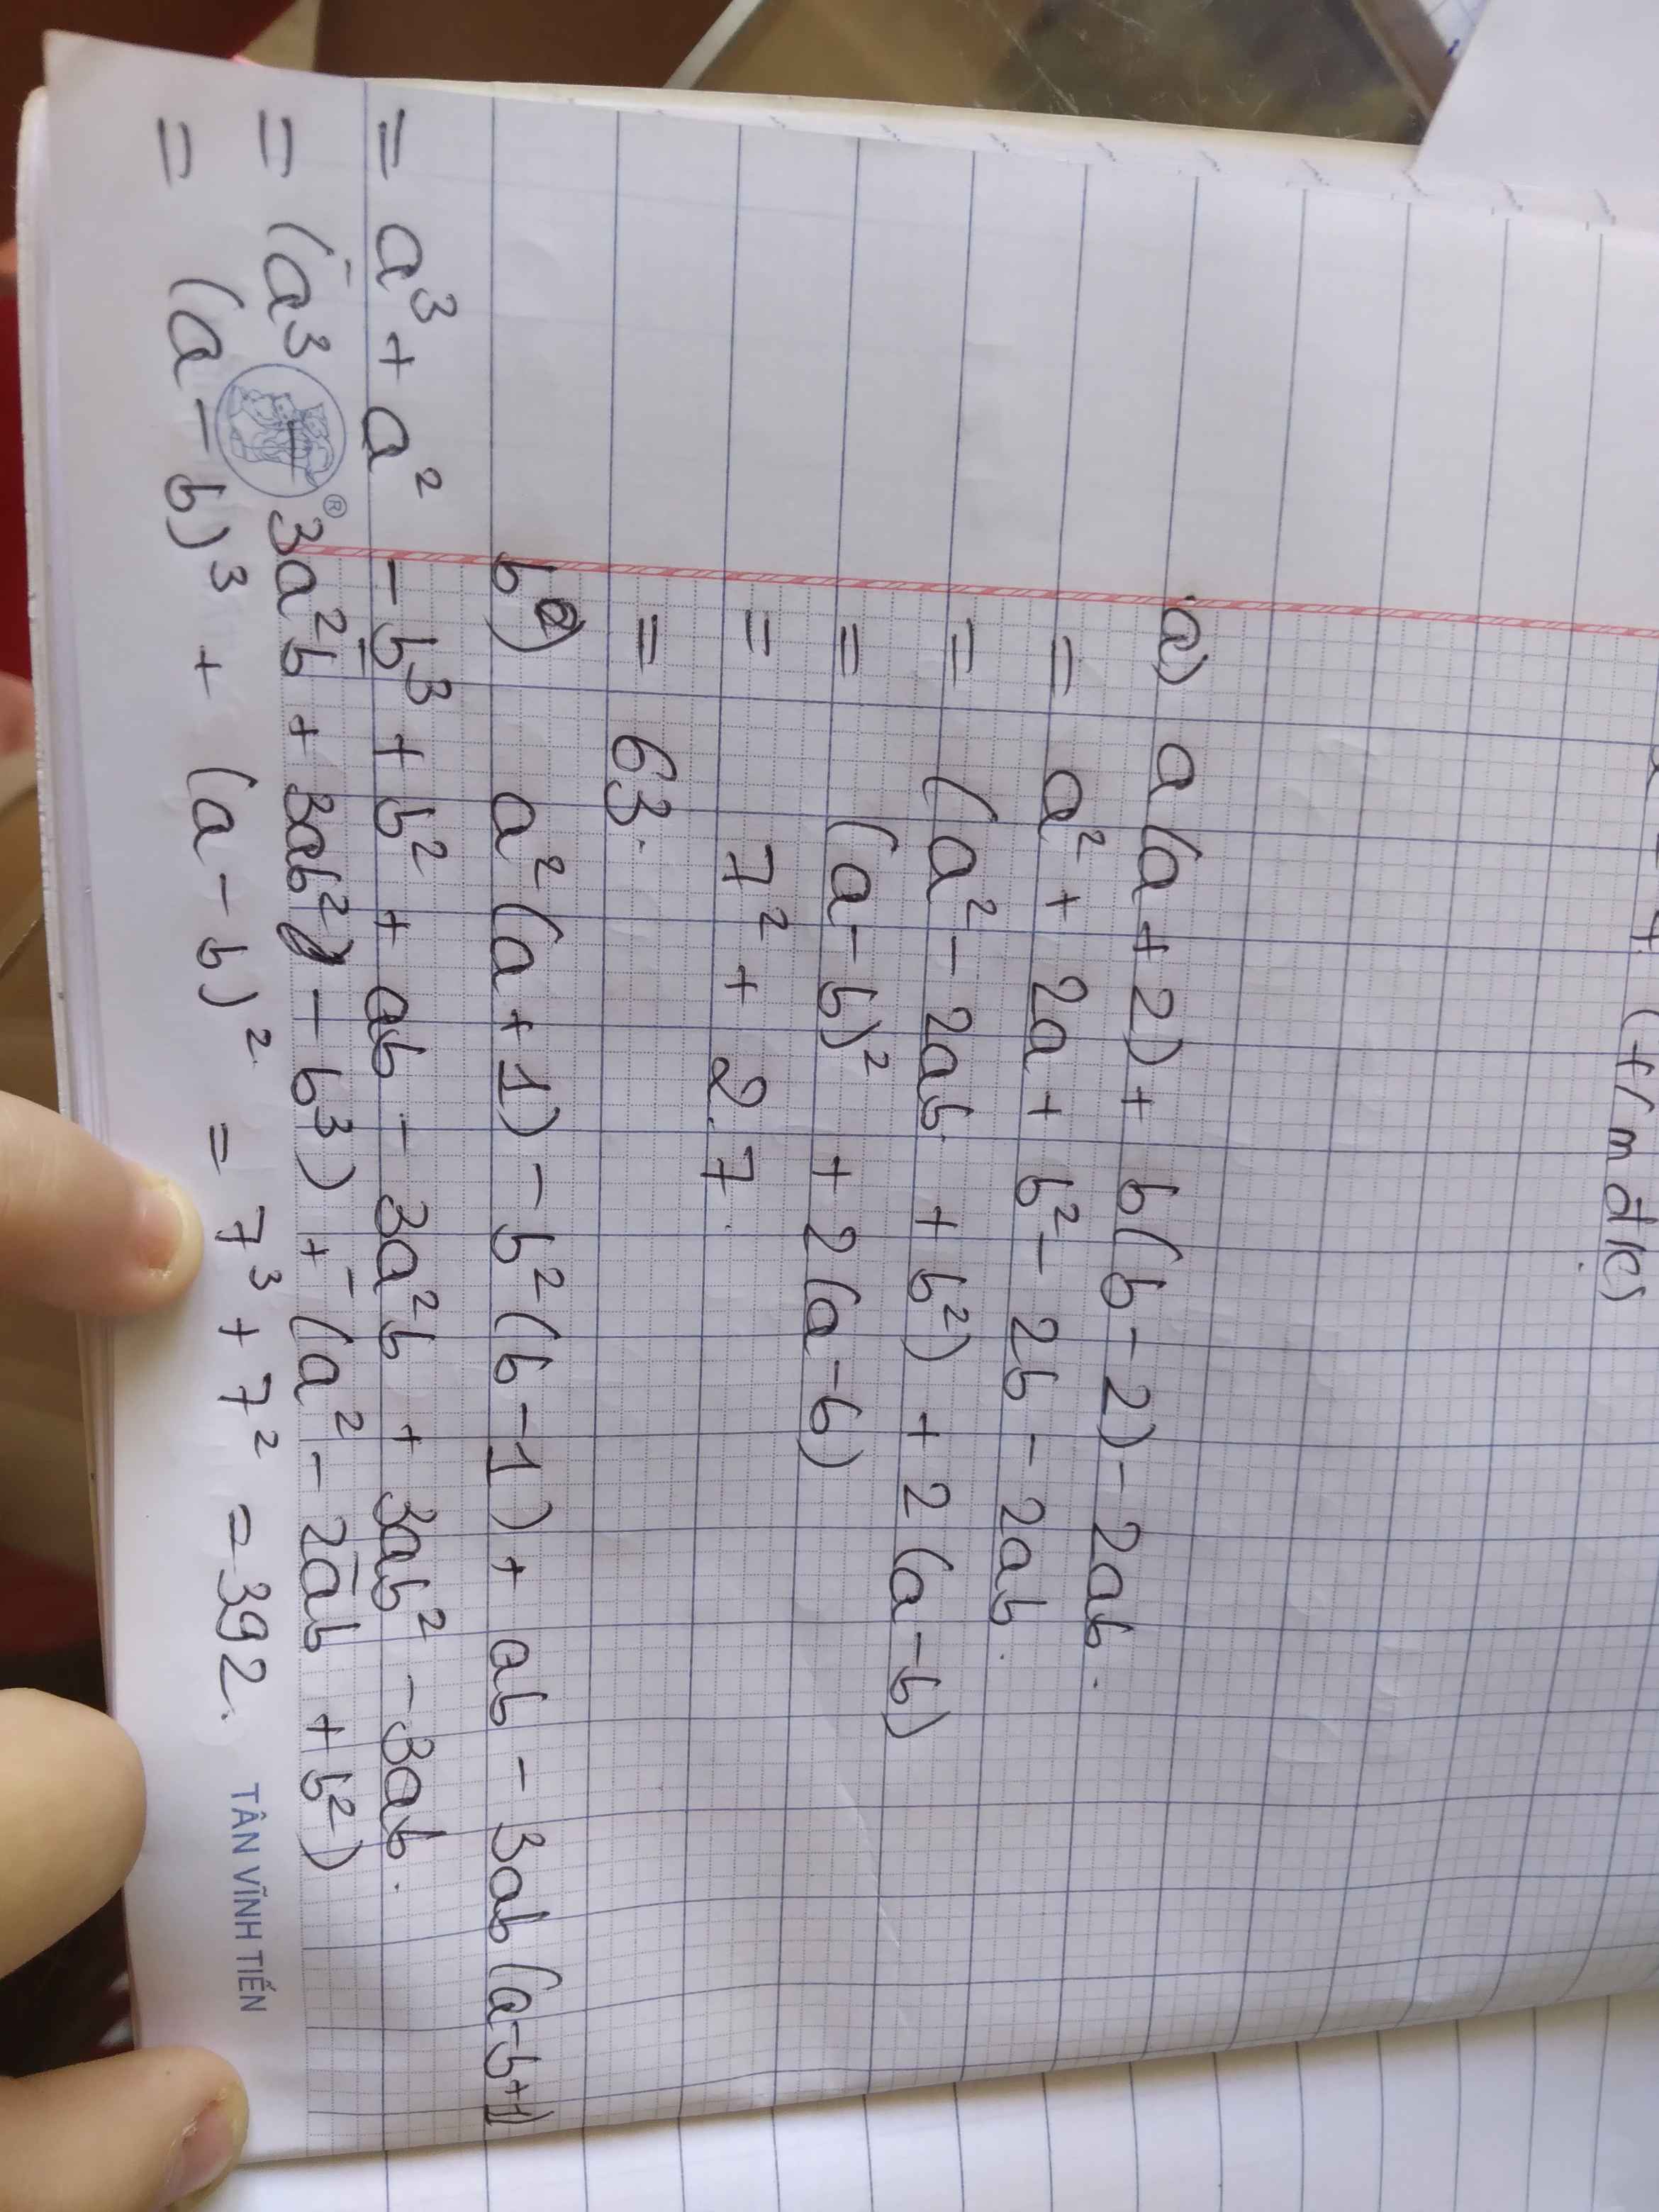 (t/m đk)
a) a(a + 2) + b(b - 2) - 2ab.
= a² + 2a + b² - 2b - 2ab.
= (a² - 2ab + b²) + 2(a - b)
= (a - b)² + 2(a - b)
= 7² + 2.7.
= 63.
b) a²(a + 1) - b²(b - 1) + ab - 3ab(a - b + 1)
= a³ + a² - b³ + b² + ab - 3a²b + 3ab² - 3ab.
= (a³ - 3a²b + 3ab² - b³) + (a² - 2ab + b²)
= (a - b)³ + (a - b)² = 7³ + 7² = 392.
®
TÂN VĨNH TIẾN